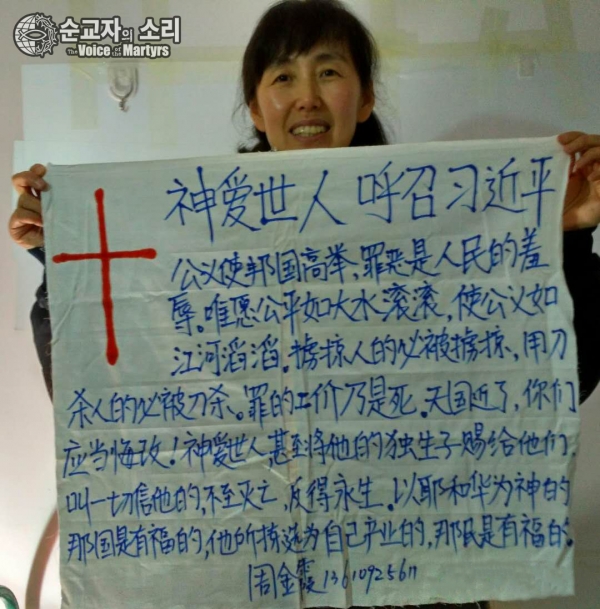 순교자의 소리
The Voice of the Martyrs
神爱世人 呼召习近平
公义使邦国高举,罪恶是人民的羞
辱。唯愿公平如大水滚滚,使公义如
江河滔滔。掳掠人的必被掳掠,用刀
杀人的必被刀杀。罪的工价乃是死。天国近了,你们
应当悔改!神爱世人甚至将他的独生子赐给他们,
叫一切信他的,不至灭亡,反得永生。以耶和华为神的
那国是有福的,他所拣选为自己产业的,那民是有福的。
周金霞 13610925611